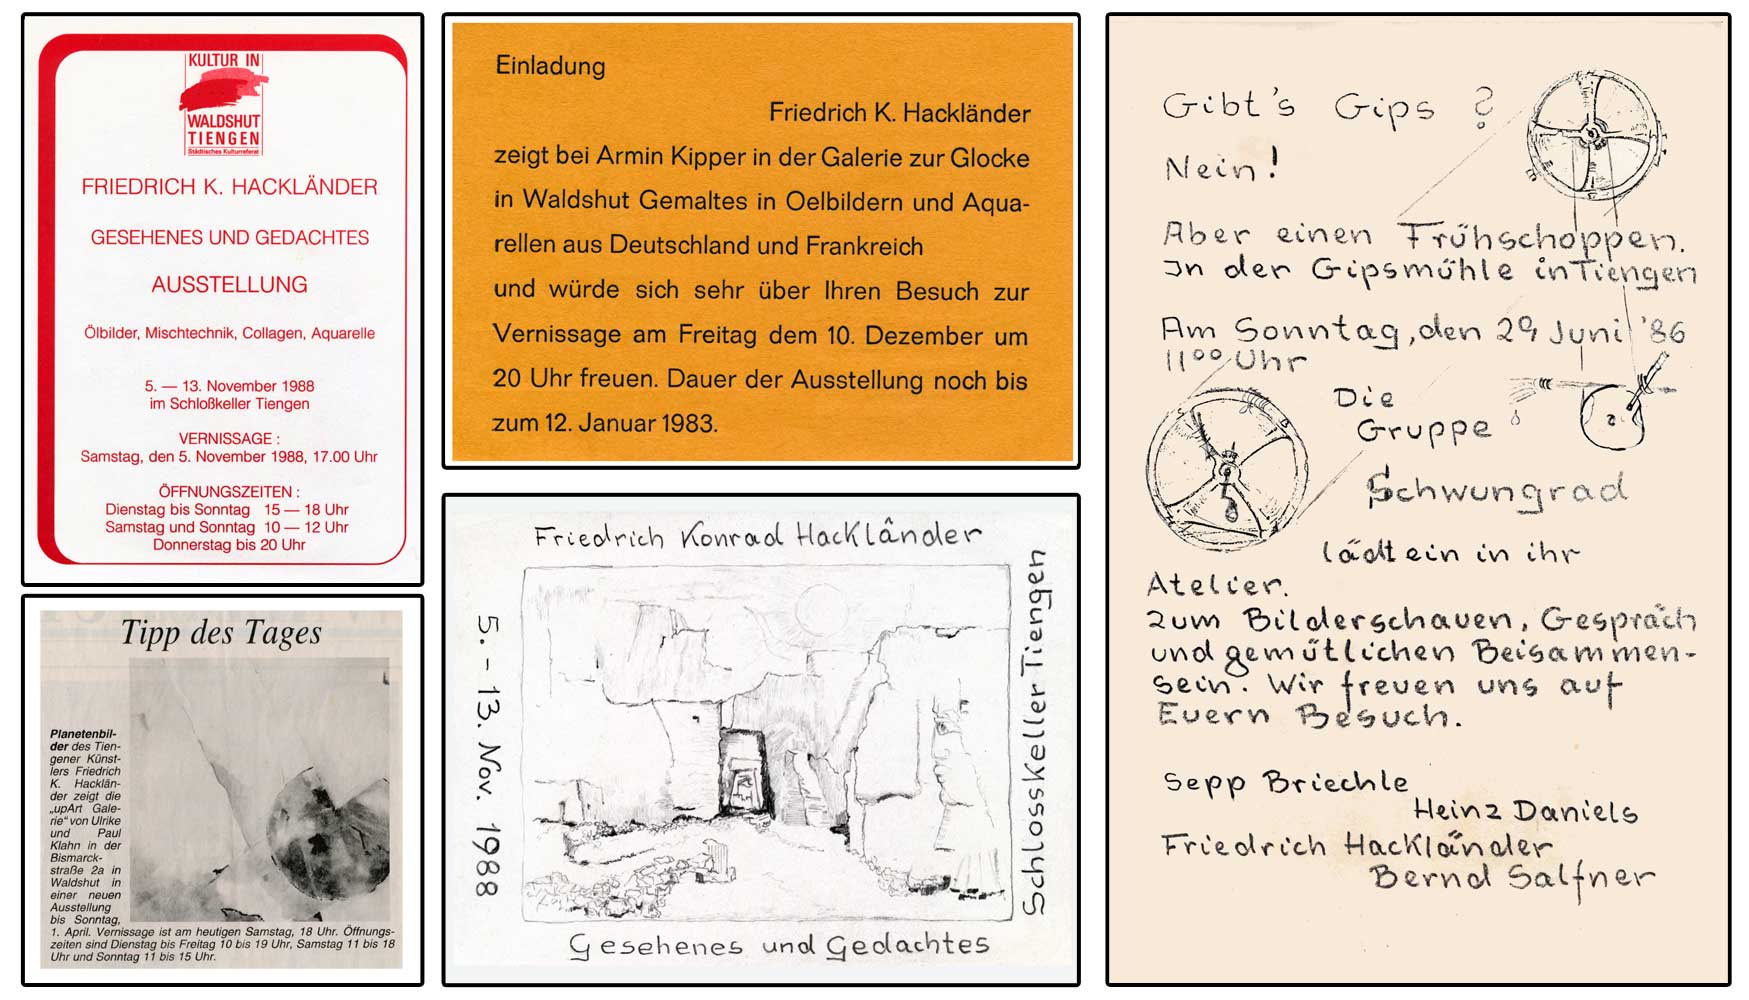 KULTUR IN
WALDSHUT
TIENGEN
Städtisches Kulturreferat
FRIEDRICH K. HACKLÄNDER
GESEHENES UND GEDACHTES
AUSSTELLUNG
Ölbilder, Mischtechnik, Collagen, Aquarelle
5. — 13. November 1988
im Schloßkeller Tiengen
VERNISSAGE :
Samstag, den 5. November 1988, 17.00 Uhr
ÖFFNUNGSZEITEN :
Dienstag bis Sonntag 15 — 18 Uhr
Samstag und Sonntag 10 — 12 Uhr
Donnerstag bis 20 Uhr
Tipp des Tages
Planetenbil-
der des Tien-
gener Künst-
lers Friedrich
K. Hacklän-
der zeigt die
„upArt Gale-
rie“ von Ulrike
und Paul
Klahn in der
Bismarck-
straße 2a in
Waldshut in
einer neuen
Ausstellung
bis Sonntag,
1. April. Vernissage ist am heutigen Samstag, 18 Uhr. Öffnungs-
zeiten sind Dienstag bis Freitag 10 bis 19 Uhr, Samstag 11 bis 18
Uhr und Sonntag 11 bis 15 Uhr.
Einladung
Friedrich K. Hackländer
zeigt bei Armin Kipper in der Galerie zur Glocke
in Waldshut Gemaltes in Oelbildern und Aqua-
rellen aus Deutschland und Frankreich
und würde sich sehr über Ihren Besuch zur
Vernissage am Freitag dem 10. Dezember um
20 Uhr freuen. Dauer der Ausstellung noch bis
zum 12. Januar 1983.
Friedrich Konrad Hackländer
5. - 13. Nov. 1988
Schlosskeller Tiengen
Gesehenes und Gedachtes
Gibt's Gips ?
Nein!
Aber einen Frühschoppen.
In der Gipsmühle in Tiengen
Am Sonntag, den 29 Juni '86
11 00 Uhr
Die
Gruppe
Schwungrad
lädt ein in ihr
Atelier.
Zum Bilderschauen, Gespräch
und gemütlichen Beisammen-
sein. Wir freuen uns auf
Euern Besuch.
Sepp Briechle
Heinz Daniels
Friedrich Hackländer
Bernd Salfner